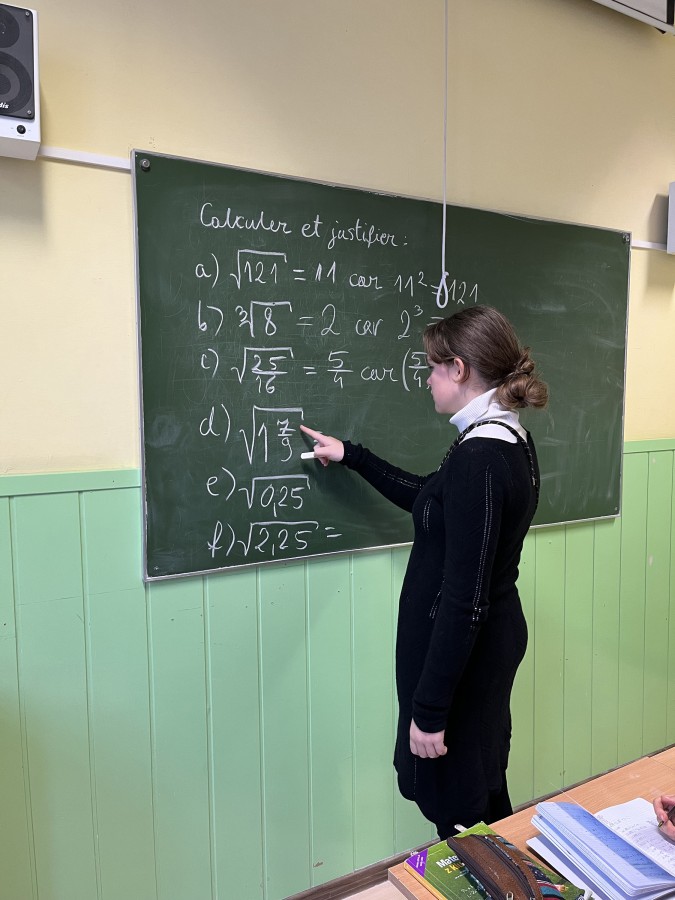 Calculer et justifier:
a) √121 = 11 car 11² = 121
b) ³√8 = 2 car 2³ =
c) √25/16 = 5/4 car (5/4
d) √1 7/9
e) √0,25
f) √2,25 =
Mate
z k